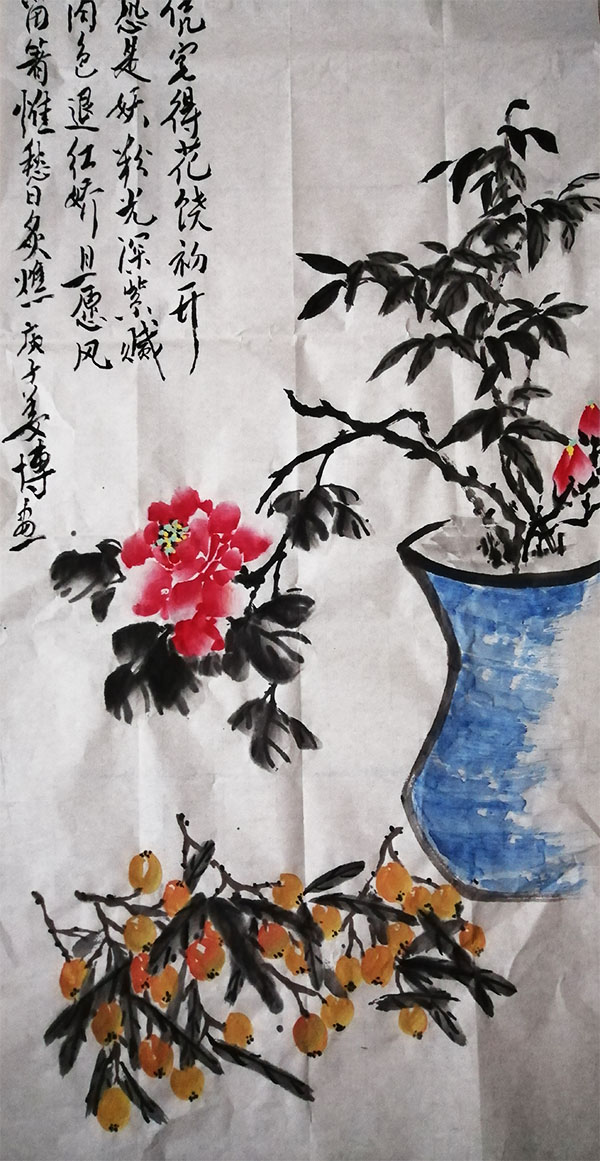 侃宅得花饶初开
恐是妖粉光深紫腻
肉色退红娇且愿风
留著惟愁日炙燋庚子姜博画